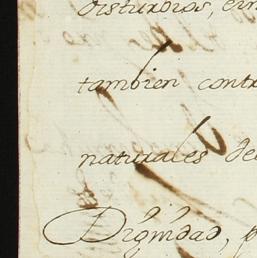 disturbios, ein
tambien contr
naturales de
Dignidad, p